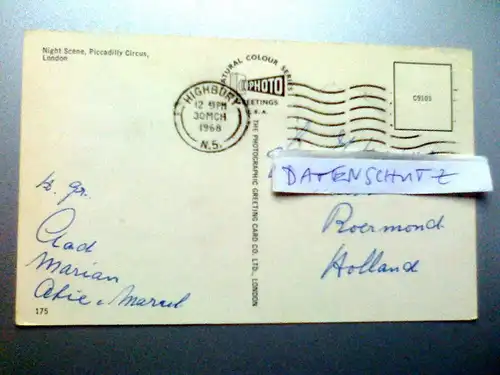 Night Scene, Piccadilly Circus,
London
NATURAL COLOUR SERIES
PHOTO
GREETINGS
HIGHBURY
12 PM
30 MCH
1968
N.5.
C9103
THE PHOTOGRAPHIC GREETING CARD CO. LTD., LONDON
DATENSCHUTZ
Roermond
Holland
h. gr.
Marian
Marcel
175